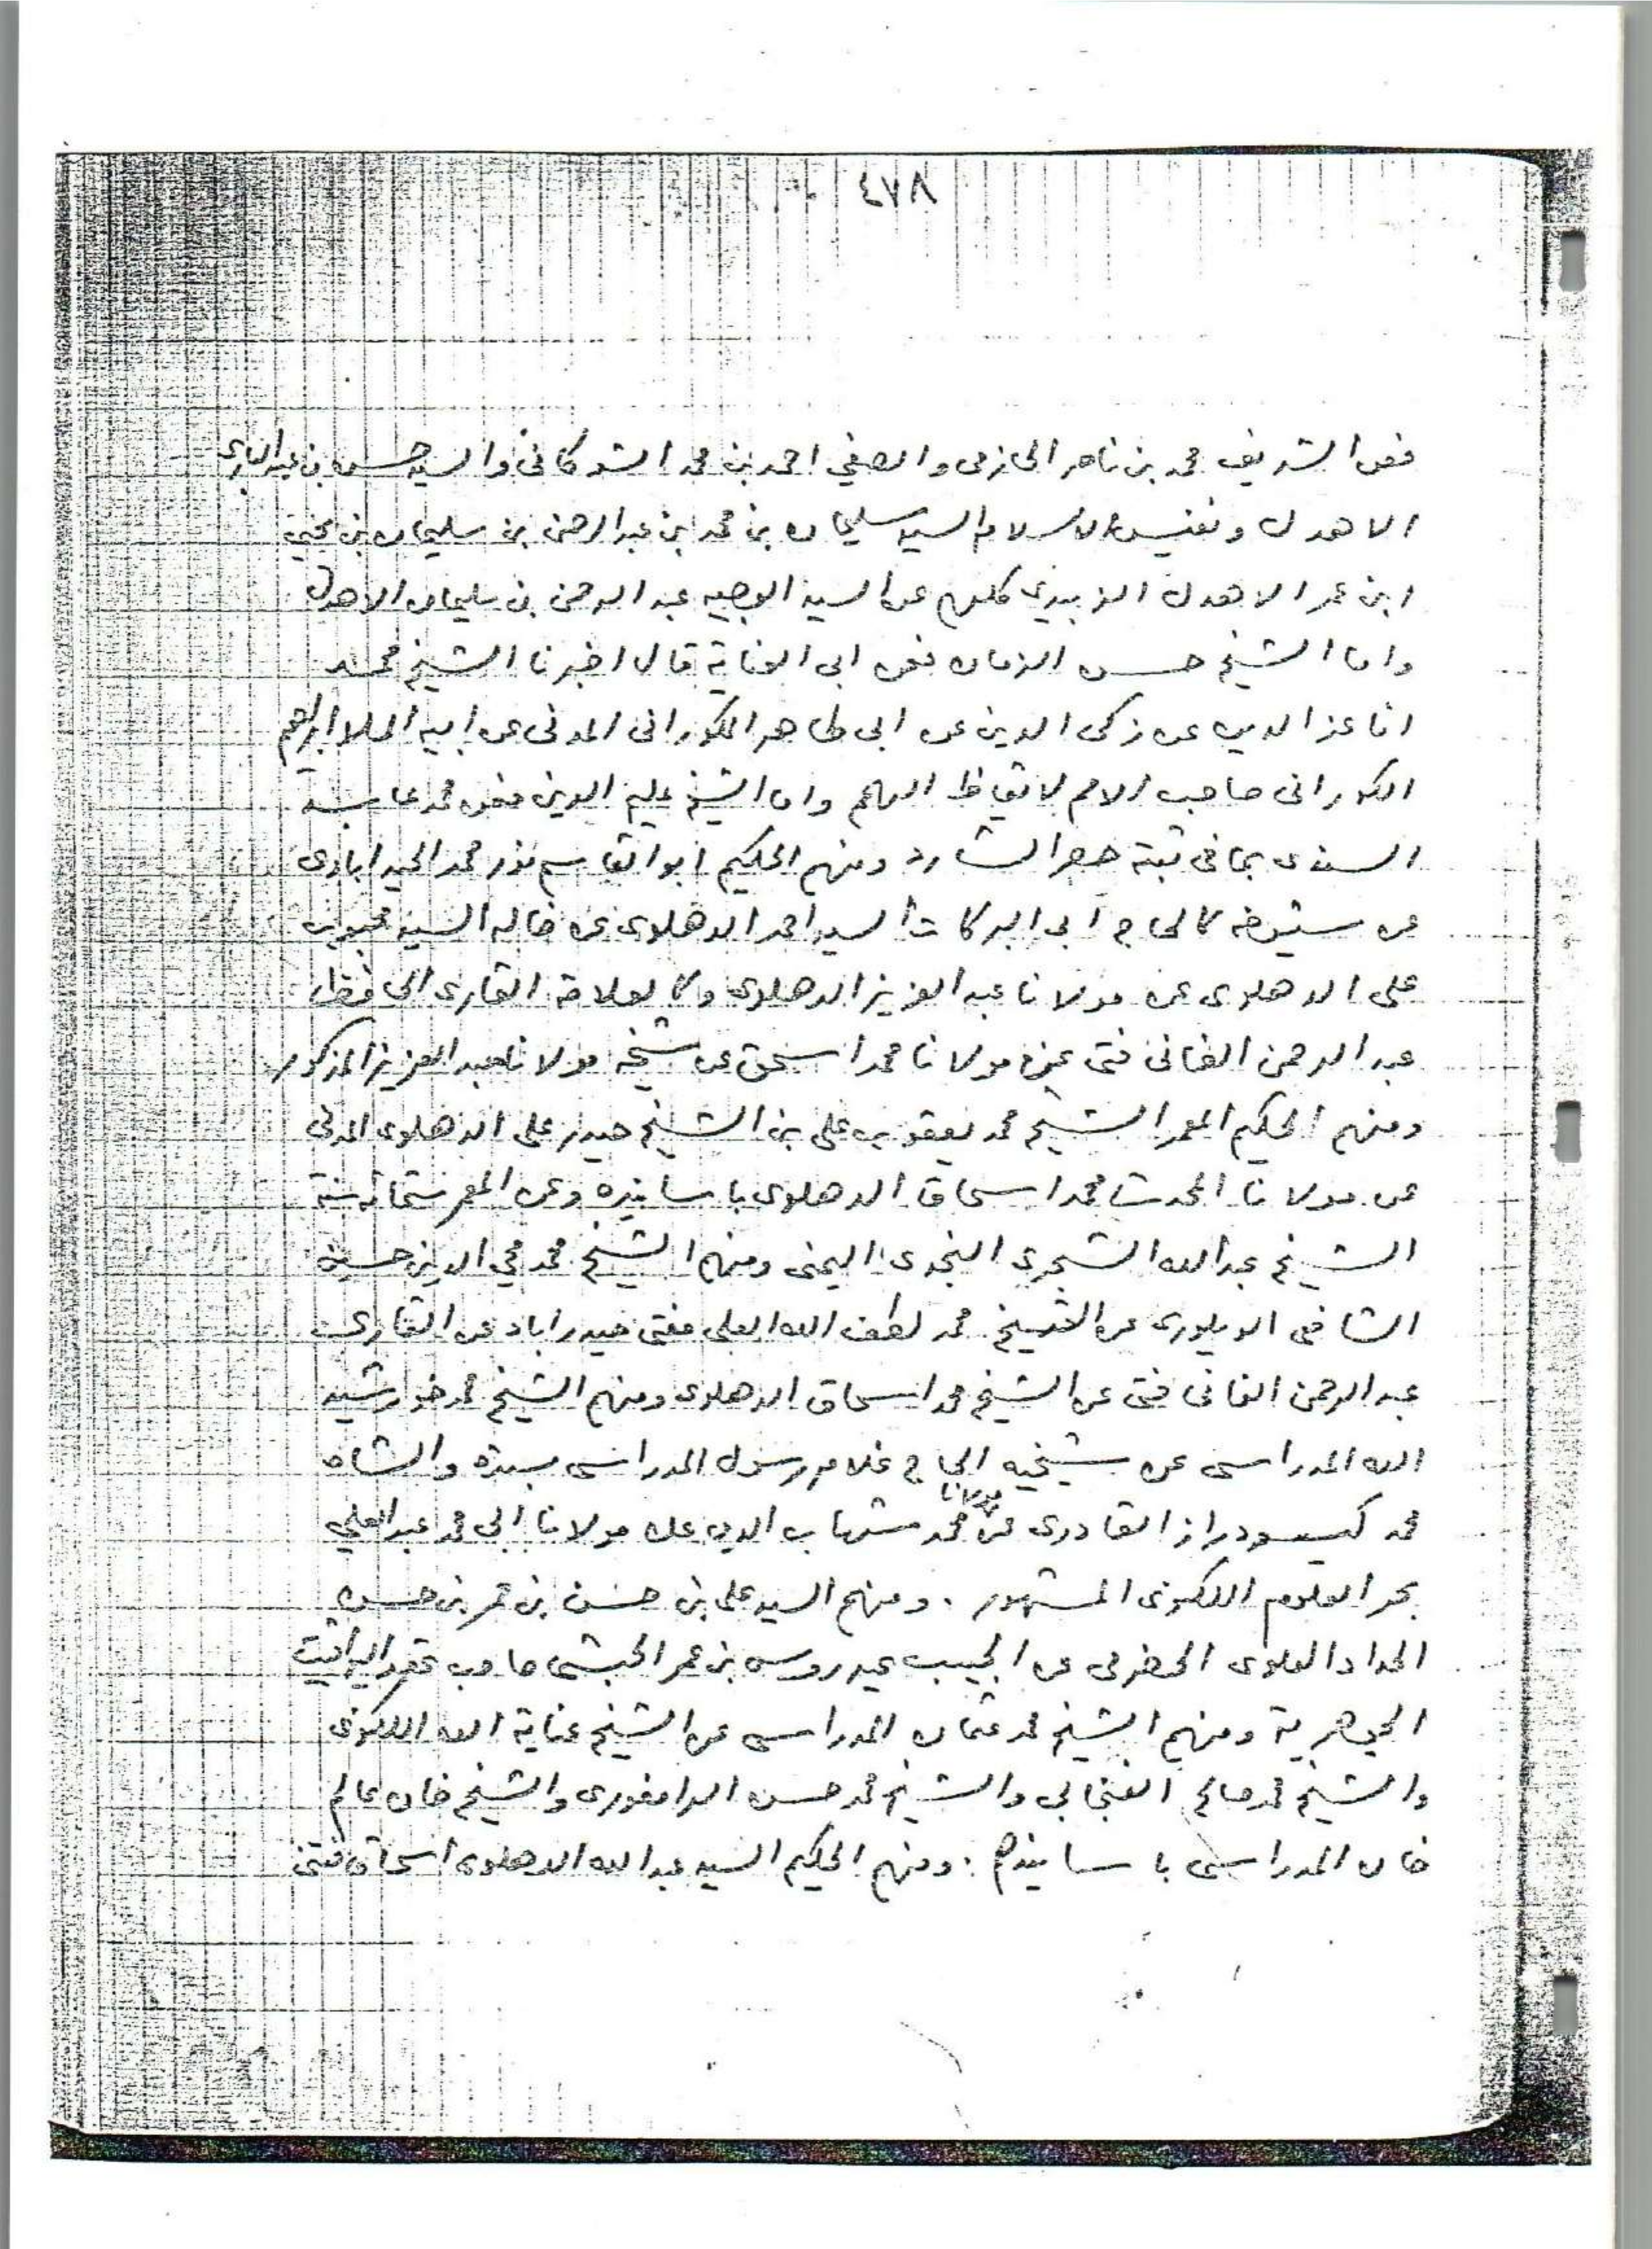 ٤٧٨
فعن الشريف محمد بن ناصر الحازمى والصفي احمد بن محمد الشوكانى والسيد حسن بن عبد البارى
الاهدل ونفيس الاسلام السيد سليمان بن محمد ابن عبد الرحمن بن سليمان بن يحيى
ابن عمر الاهدل الزبيدى كلهم عن السيد الوجيه عبد الرحمن بن سليمان الاهدل
واما الشيخ حسن الزمان فعن ابى العناية قال اخبرنا الشيخ محمد
انا عز الدين عن زكى الدين عن ابى طاهر الكورانى المدنى عن ابيه الملا ابراهيم
الكورانى صاحب الامم لايقاظ الهمم واما الشيخ عليم الدين فعن محمد عابد
السندى بما فى ثبته حصر الشارد ومنهم الحكيم ابو القاسم نور محمد الحيدرابادى
عن شيوخه كالحاج ابى البركات السيد احمد الدهلوى عن خاله السيد محبوب
على الدهلوى عن مولانا عبد العزيز الدهلوى وكالعلامة القارى الحافظ
عبد الرحمن الفانى فتى عن مولانا محمد اسحق عن شيخه مولانا عبد العزيز المذكور
ومنهم الحكيم المعمر الشيخ محمد يعقوب على بن الشيخ حيدر على الدهلوى المدنى
عن مولانا المحدث محمد اسحاق الدهلوى باسانيده وعن المعمر ستمائة سنة
الشيخ عبد الله الشجرى النجدى اليمنى ومنهم الشيخ محمد محي الدين حسين
الشافعى الويلورى عن الشيخ محمد لطف الله العلى مفتى حيدراباد عن القارى
عبد الرحمن الفانى فتى عن الشيخ محمد اسحاق الدهلوى ومنهم الشيخ محمد خورشيد
الله المدراسى عن شيخيه الحاج غلام رسول المدراسى بسنده والشاه
محمد كيسودراز القادرى عن مولانا محمد شهاب الدين عن مولانا ابى محمد عبد العلى
بحر العلوم اللكنوى المشهور . ومنهم السيد على بن حسن بن عمر بن حسن
الحداد العلوى الحضرمى عن الحبيب عيدروس بن عمر الحبشى صاحب عقد اليواقيت
الجوهرية ومنهم الشيخ محمد عثمان المدراسى عن الشيخ عناية الله اللكنوى
والشيخ محمد صالح الفنجابى والشيخ محمد حسن الرامفورى والشيخ خان عالم
خان المدراسى باسانيدهم . ومنهم الحكيم السيد عبد الله الدهلوى اسحاق فتنى